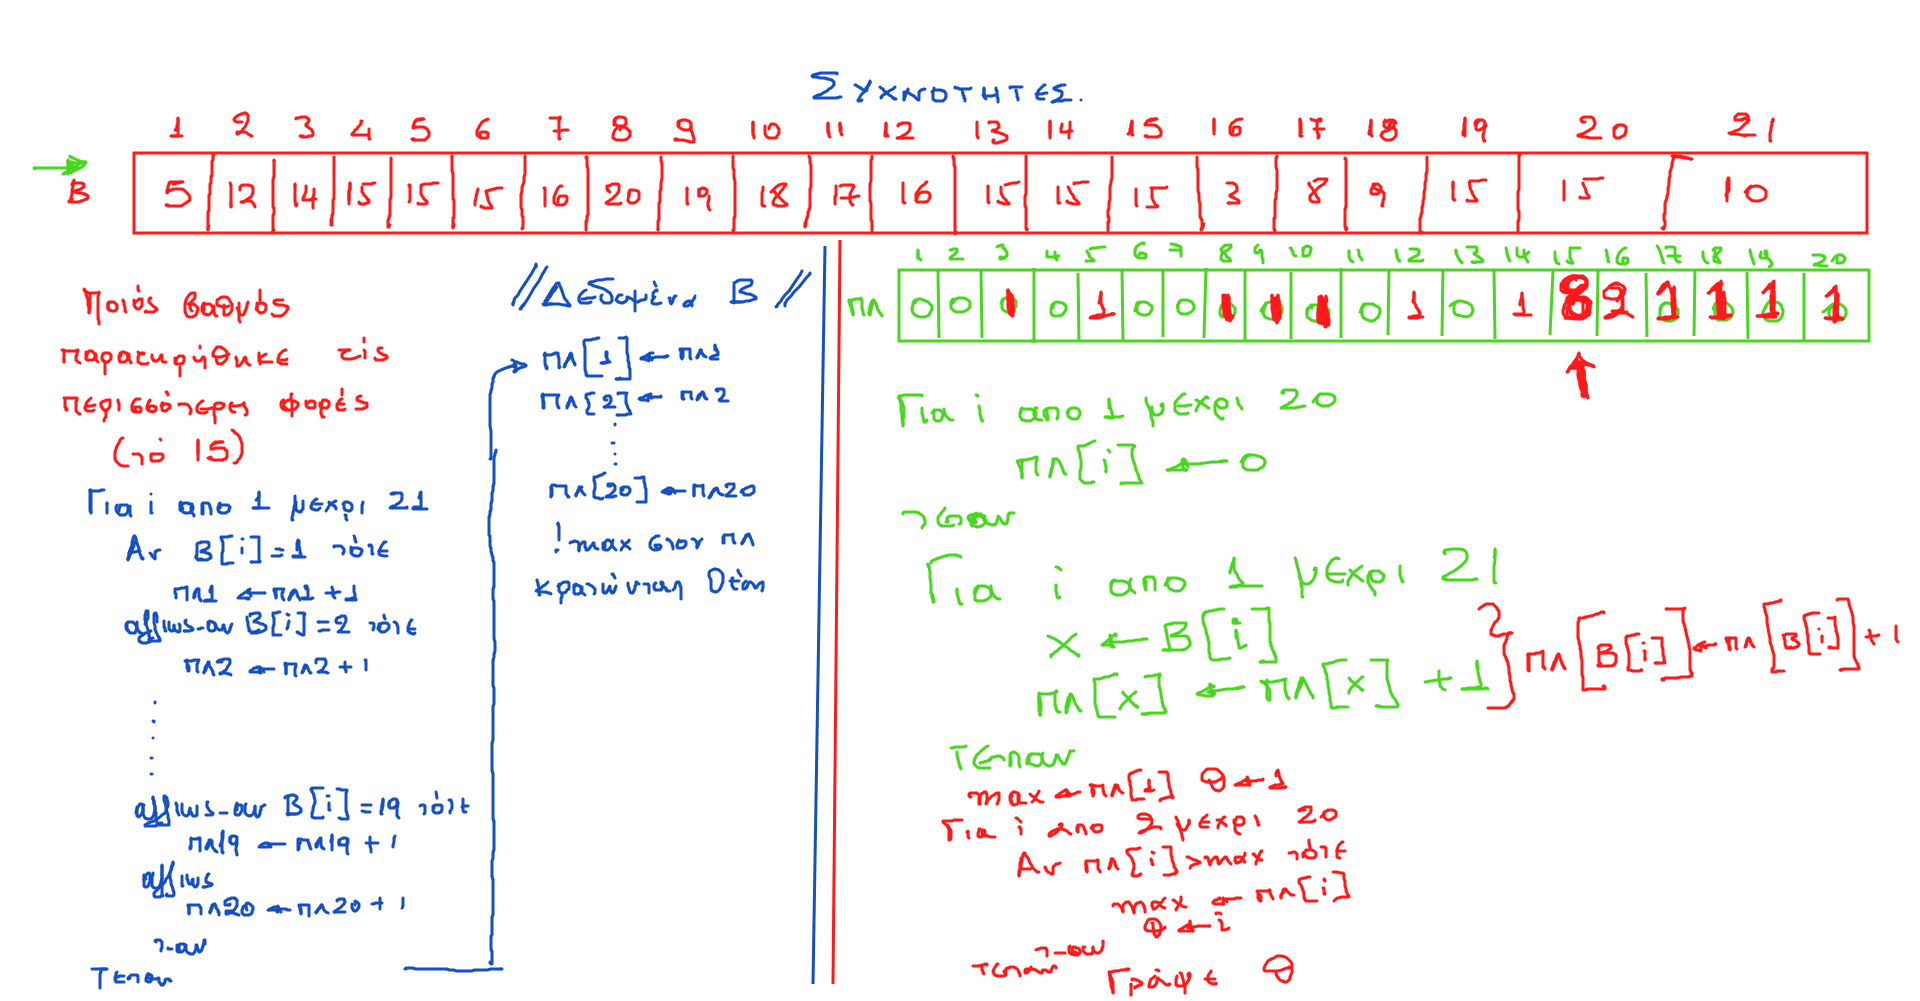 ΣΥΧΝΟΤΗΤΕΣ.
1 2 3 4 5 6 7 8 9 10 11 12 13 14 15 16 17 18 19 20 21
Β 5 12 14 15 15 15 16 20 19 18 17 16 15 15 15 3 8 9 15 15 10
Ποιός βαθμός
παρατηρήθηκε τίς
περισσότερες φορές
(τό 15)
Για i απο 1 μεχρι 21
Αν Β[i]=1 τότε
πλ1 ← πλ1 +1
αλλιως-αν Β[i]=2 τότε
πλ2 ← πλ2 +1
αλλιως-αν Β[i]=19 τότε
πλ19 ← πλ19 +1
αλλιως
πλ20 ← πλ20 +1
τ-αν
Τεπαν
// Δεδομένα Β //
πλ[1] ← πλ1
πλ[2] ← πλ2
πλ[20] ← πλ20
! max στον πλ
κρατώντας θέση
1 2 3 4 5 6 7 8 9 10 11 12 13 14 15 16 17 18 19 20
πλ 0 0 1 0 1 0 0 1 1 1 0 1 0 1 8 2 1 1 1 1
Για i απο 1 μεχρι 20
πλ[i] ← 0
τεπαν
Για i απο 1 μεχρι 21
x ← Β[i]
πλ[x] ← πλ[x] +1
} πλ[Β[i]] ← πλ[Β[i]] +1
τεπαν
max ← πλ[1] θ ← 1
Για i απο 2 μεχρι 20
Αν πλ[i]>max τότε
max ← πλ[i]
θ ← i
τ-αν
τεπαν
Γράψε θ